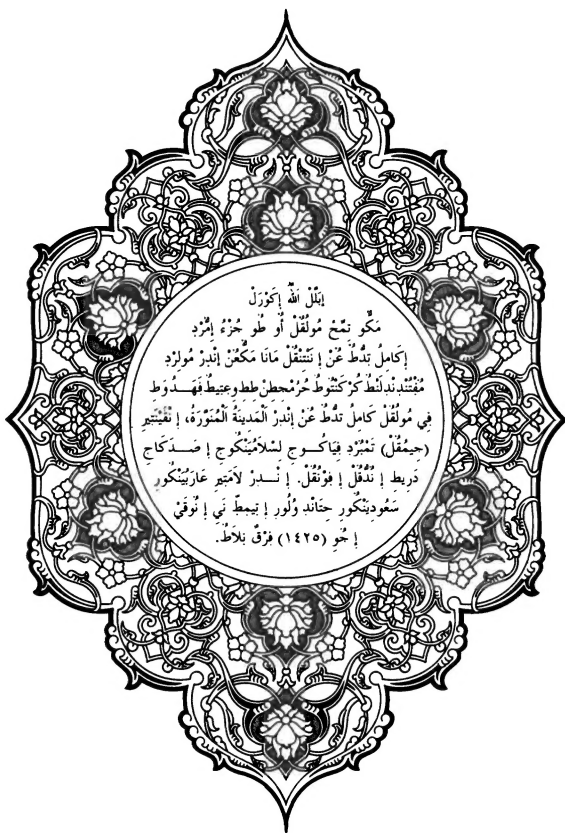 إبلل الله إكَوْرَلْ
مَكُّو نَمَّجْ مُولُقُلْ أُو طُو جُزْءُ إمُّرْدِ
إكَامِلُ تِدُّطُ عُنْ إنَتْتَنْقُلْ مَانَا مَكُّعُنْ إنْدِرْ مُولرْدِ
مُفْتَنْدِنُدِلَنطُ كُرْكَنْتُوطُ حُرُمْجطنْ طط وعِنِيطُ فِهَدُوطِ
فِي مُولُقُلْ كَامِلُ تدُّطُ عُنْ إنْدِرْ ٱلْمَدِينَةُ ٱلْمُنَوَّرَةُ، إنُقُيِنْتِيرِ
(جِيمُقُلْ) نَمُبَرْدِ فِيَاكُوجِ لِسْلَامُيِنْكُوجِ إصَدَكَاجِ
دَرِيطِ إنُدُّقُلْ إفِوْنُقُلْ. إنْدِرْ لَامْتِيرِ عَارَبُيِنْكُورِ
سَعُودِيَنْكُورِ حِتَانْدِ وُلُورِ إتِيمِطِّ نِي إنُوقَيْ
إجُوِ (١٤٢٥) فِرْقُ بَلَاطُ.